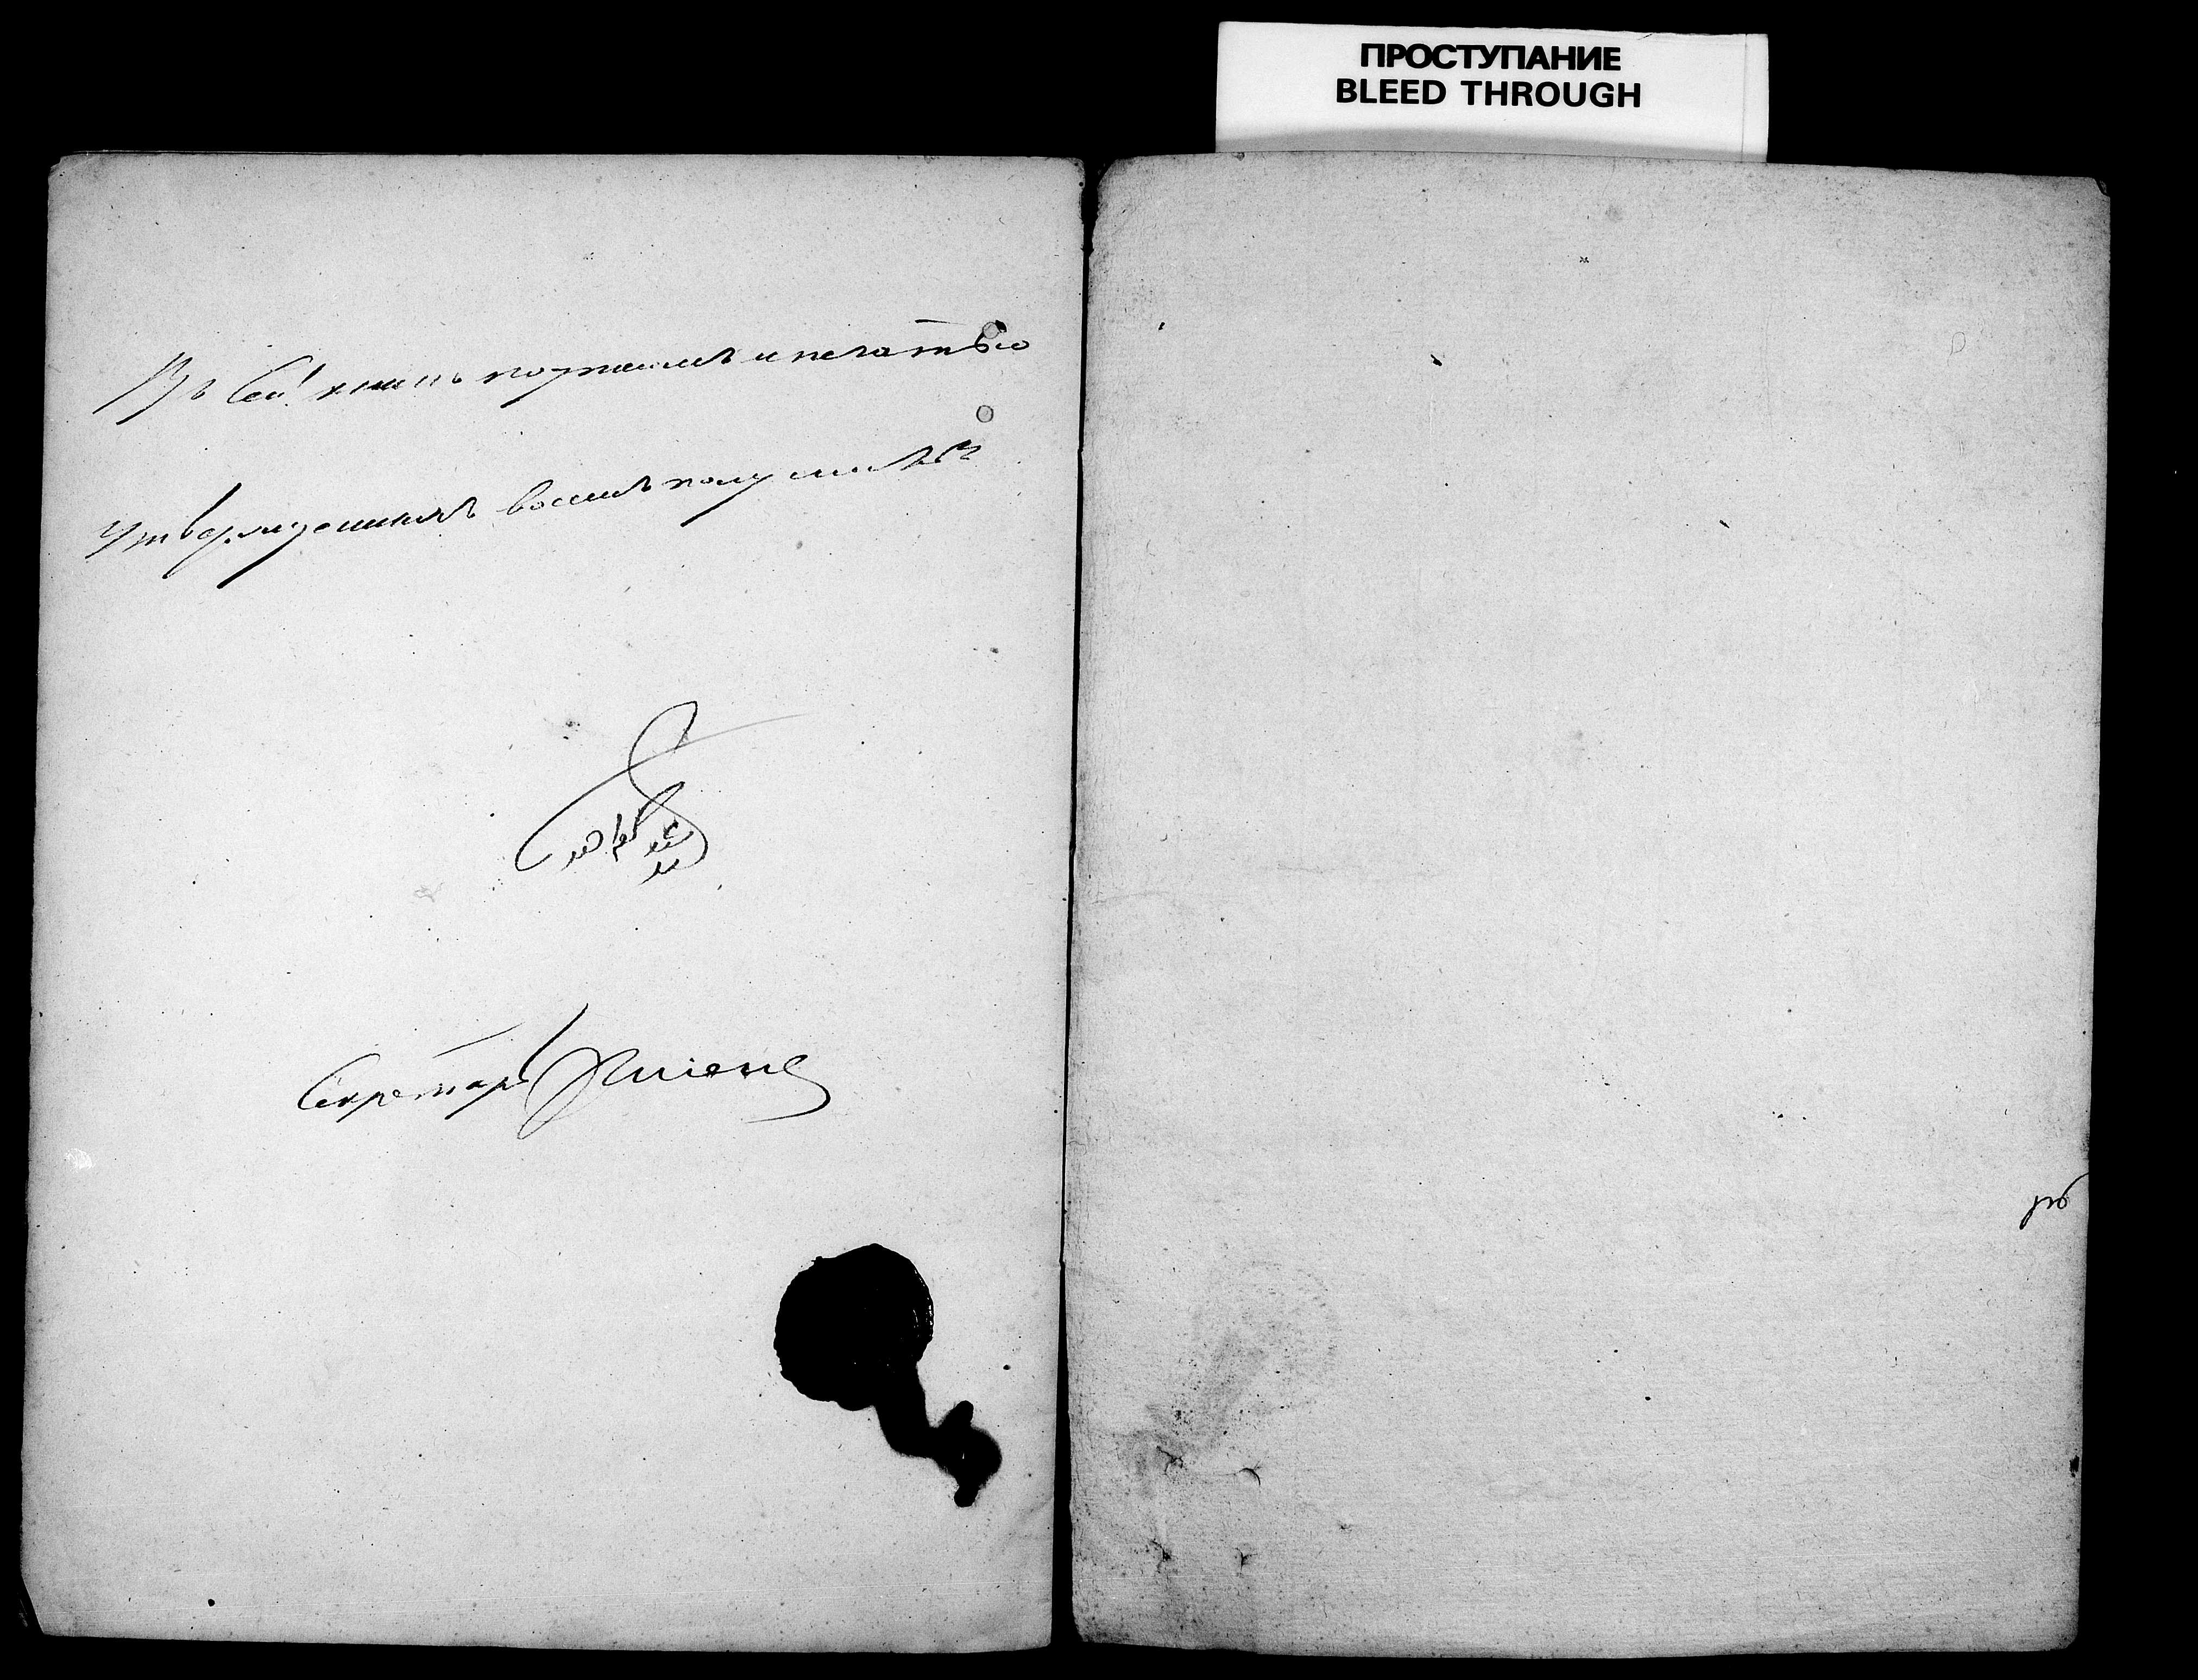 ПРОСТУПАНИЕ
BLEED THROUGH
Въ сей книгѣ подписомъ и печатью
утвержденныхъ восемь полулистовъ
Секретарь